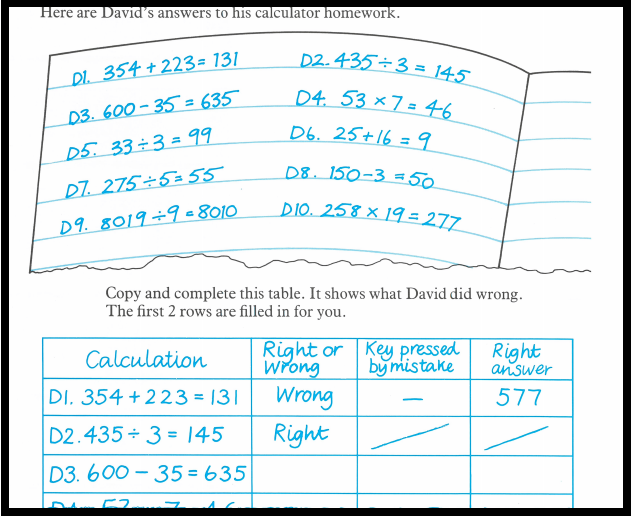 Here are David's answers to his calculator homework.
D1. 354 + 223 = 131
D2. 435 ÷ 3 = 145
D3. 600 - 35 = 635
D4. 53 × 7 = 46
D5. 33 ÷ 3 = 99
D6. 25 + 16 = 9
D7. 275 ÷ 5 = 55
D8. 150 - 3 = 50
D9. 8019 ÷ 9 = 8010
D10. 258 × 19 = 277
Copy and complete this table. It shows what David did wrong.
The first 2 rows are filled in for you.
Calculation
Right or
Wrong
Key pressed
by mistake
Right
answer
D1. 354 + 223 = 131 Wrong — 577
D2. 435 ÷ 3 = 145 Right / /
D3. 600 - 35 = 635